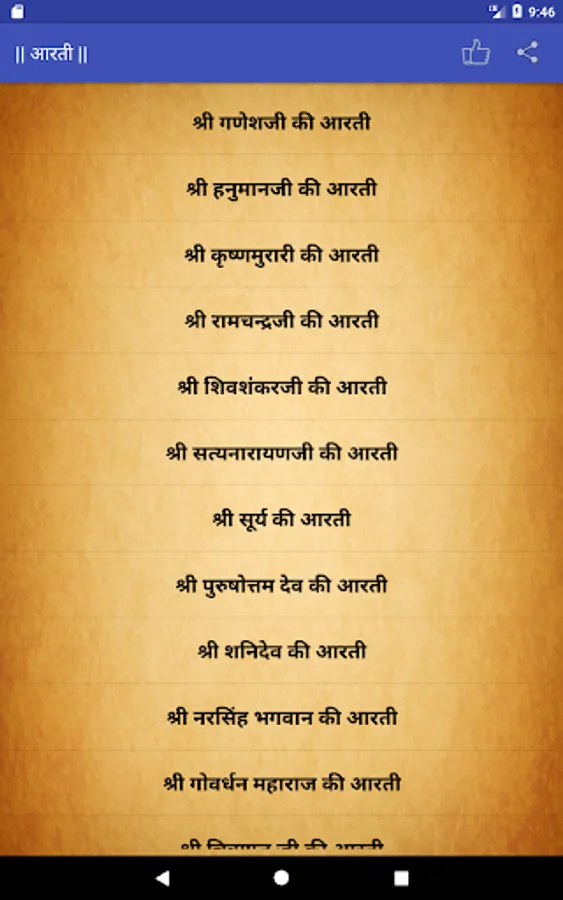 9:46
|| आरती ||
श्री गणेशजी की आरती
श्री हनुमानजी की आरती
श्री कृष्णमुरारी की आरती
श्री रामचन्द्रजी की आरती
श्री शिवशंकरजी की आरती
श्री सत्यनारायणजी की आरती
श्री सूर्य की आरती
श्री पुरुषोत्तम देव की आरती
श्री शनिदेव की आरती
श्री नरसिंह भगवान की आरती
श्री गोवर्धन महाराज की आरती